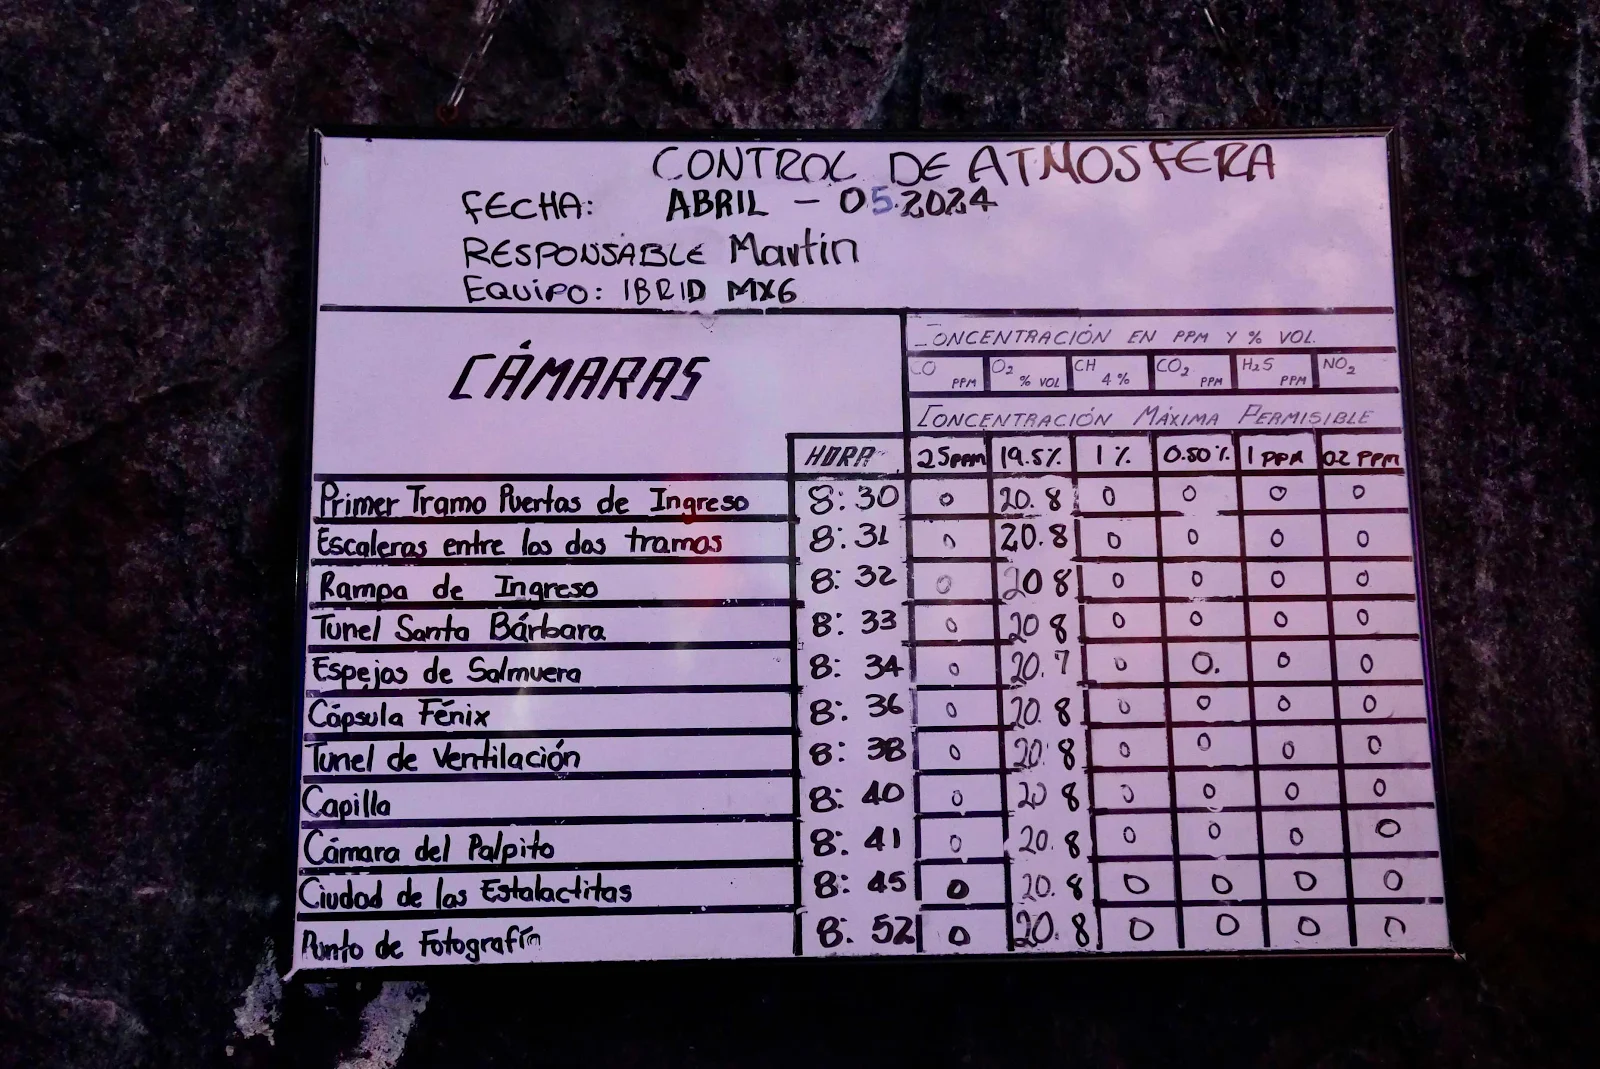 CONTROL DE ATMOSFERA
FECHA: ABRIL - 05.2024
RESPONSABLE Martin
EQUIPO: IBRID MX6
CÁMARAS
CONCENTRACIÓN EN PPM Y % VOL.
CO PPM O2 % VOL CH 4 % CO2 PPM H2S PPM NO2
CONCENTRACIÓN MÁXIMA PERMISIBLE
HORA 25PPM 19.5% 1 % 0.50% 1 PPM 02 PPM
Primer Tramo Puertas de Ingreso 8:30 0 20.8 0 0 0 0
Escaleras entre los dos tramos 8:31 0 20.8 0 0 0 0
Rampa de Ingreso 8:32 0 20 8 0 0 0 0
Tunel Santa Bárbara 8:33 0 20 8 0 0 0 0
Espejos de Salmuera 8:34 0 20.7 0 0. 0 0
Cápsula Fénix 8:36 0 20.8 0 0 0 0
Tunel de Ventilación 8:38 0 20.8 0 0 0 0
Capilla 8:40 0 20 8 0 0 0 0
Cámara del Palpito 8:41 0 20.8 0 0 0 0
Ciudad de las Estalactitas 8:45 0 20.8 0 0 0 0
Punto de Fotografía 8:52 0 20.8 0 0 0 0